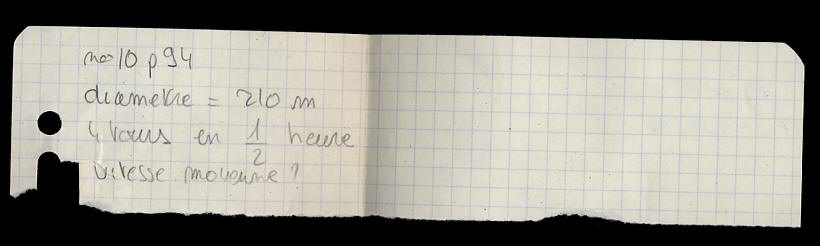 no 10 p 94
diametre = 210 m
4 tours en 1/2 heure
vitesse moyenne ?